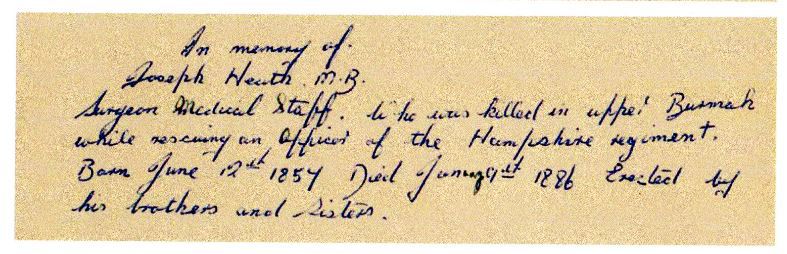 In memory of.
Joseph Heath. M.B.
Surgeon Medical Staff. Who was killed in upper Burmah
while rescuing an Officer of the Hampshire regiment.
Born June 12th 1854 Died 1886 Erected by
his brothers and sisters.